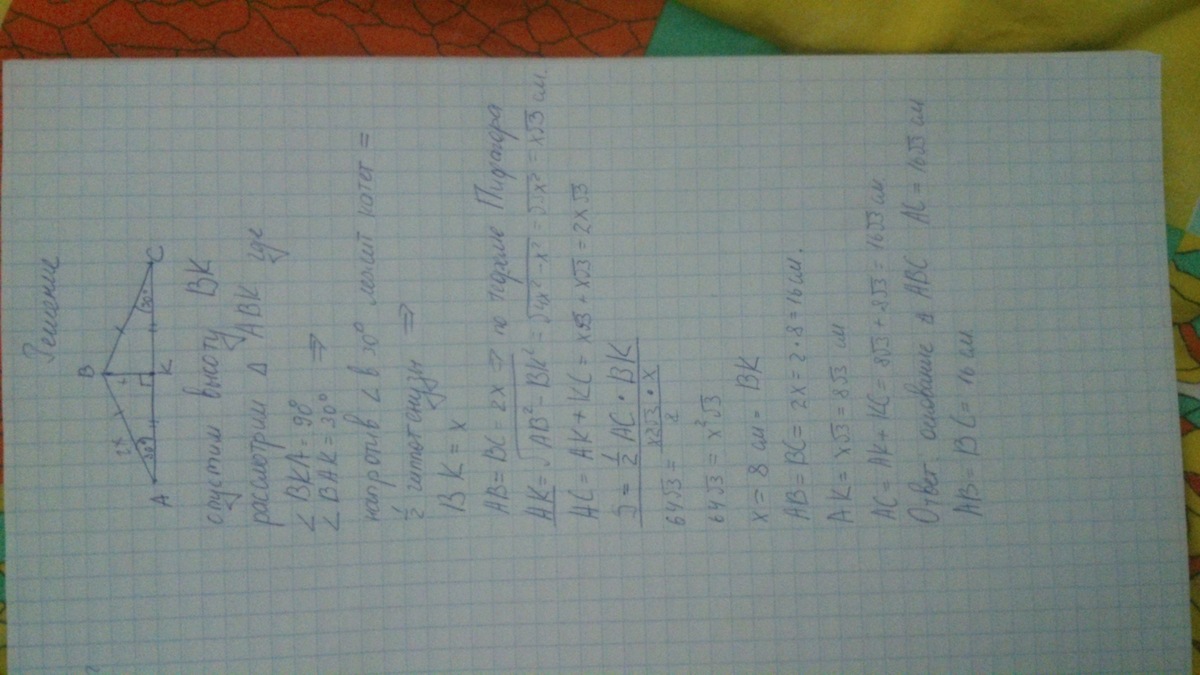 Решение
B
2x
x
30°
30°
A
K
C
опустим высоту BK
рассмотрим Δ ABK где
∠ BKA = 90°
∠ BAK = 30° ⇒
напротив ∠ в 30° лежит катет =
1/2 гиппотенузы ⇒
BK = x
AB = BC = 2x ⇒ по теореме Пифагора
AK = √AB² - BK² = √4x² - x² = √3x² = x√3 см.
AC = AK + KC = x√3 + x√3 = 2x√3
S = 1/2 AC · BK
64√3 = x2√3 · x / 2
64√3 = x²√3
x = 8 см = BK
AB = BC = 2x = 2·8 = 16 см.
AK = x√3 = 8√3 см
AC = AK + KC = 8√3 + 8√3 = 16√3 см.
Ответ. основание Δ ABC AC = 16√3 см
AB = BC = 16 см